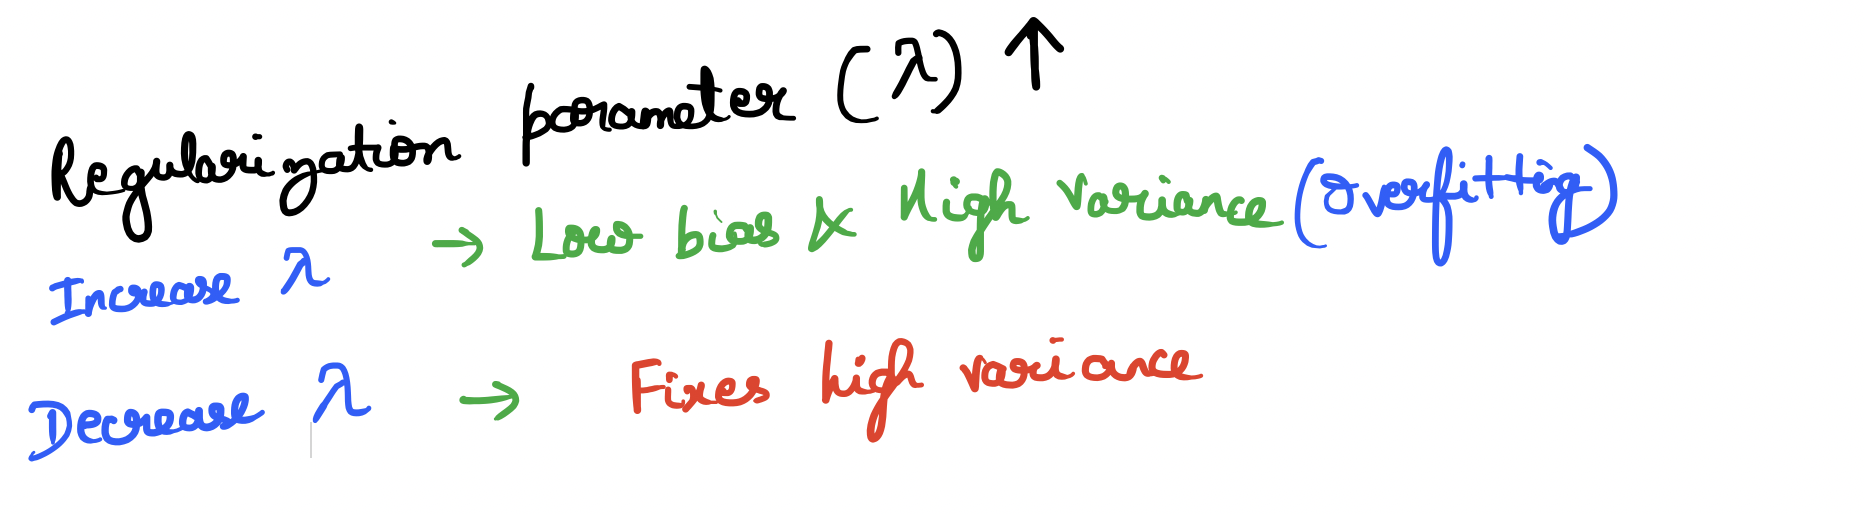 Regularization parameter (λ) ↑
Increase λ → Low bias & High variance (Overfitting)
Decrease λ → Fixes high variance